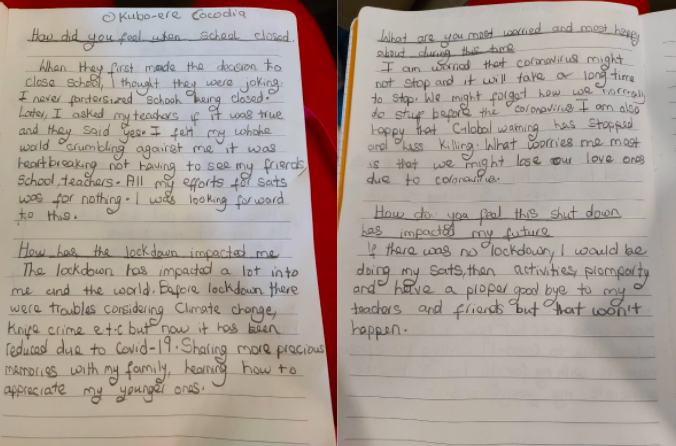 Okubo-ere Cocodia
How did you feel when school closed.
When they first made the decison to
close school, I thought they were joking.
I never fantersized school being closed.
Later, I asked my teachers if it was true
and they said yes. I felt my whole
world crumbling against me it was
heartbreaking not having to see my friends,
school, teachers. All my efforts for sats
was for nothing. I was looking forward
to this.
How has the lockdown impacted me
The lockdown has impacted a lot into
me and the world. Before lockdown there
were troubles considering Climate change,
Knife crime e.t.c but now it has been
reduced due to Covid-19. Sharing more precious
memories with my family, learning how to
appreciate my younger ones.
What are you most worried and most happy
about during this time
I am worried that coronavirus might
not stop and it will take a long time
to stop. We might forget how we normally
do stuff before the coronavirus. I am also
happy that Global waming has stopped
and less killing. What worries me most
is that we might lose our love ones
due to coronavirus.
How do you feel this shut down
has impacted my future
If there was no lockdown, I would be
doing my sats, then activities, promparty
and have a proper good bye to my
teachers and friends but that won't
happen.